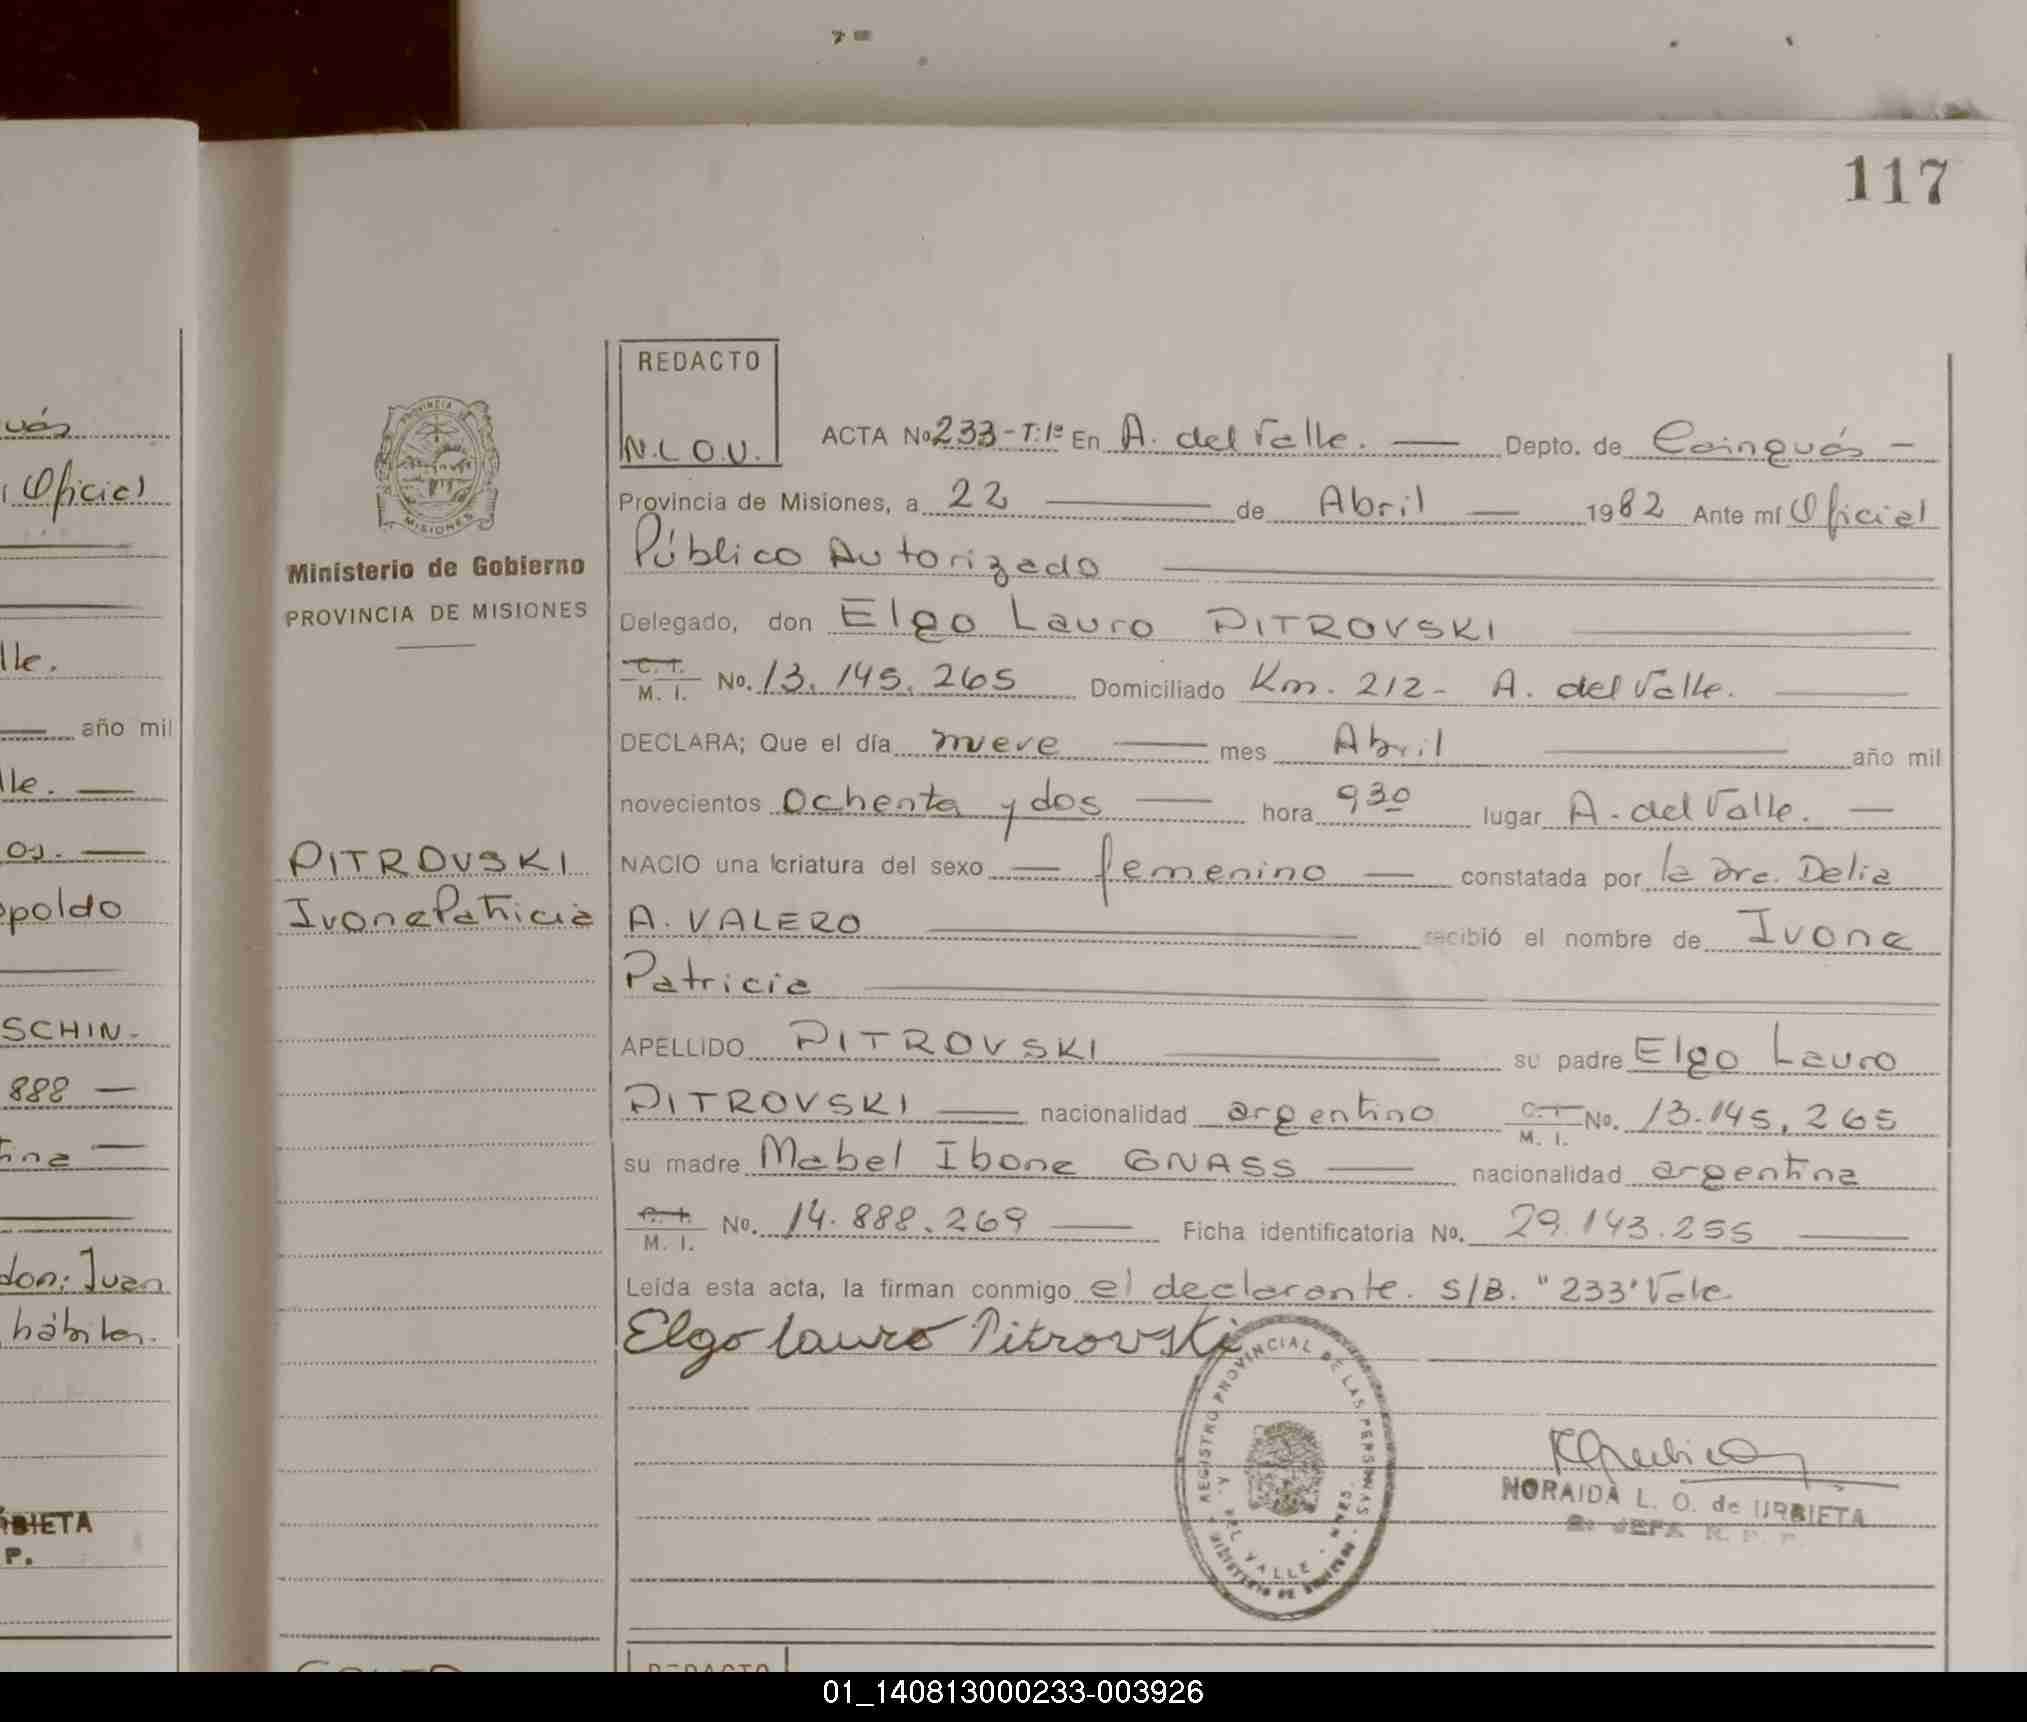 117
uás
Oficial
lle.
año mil
lle.
os.
poldo
SCHIN-
888
tina
don: Juan
hábiles.
RBIETA
P.
PROVINCIA DE
MISIONES
Ministerio de Gobierno
PROVINCIA DE MISIONES
PITROVSKI
Ivone Patricia
REDACTO
N.L.O.U.
ACTA No 233-T:1º En A. del Valle. Depto. de Cainguás
Provincia de Misiones, a 22 de Abril 1982 Ante mí Oficial
Público Autorizado
Delegado, don Elgo Lauro PITROVSKI
C. I. M. I. No. 13.145.265 Domiciliado Km. 212- A. del Valle.
DECLARA; Que el día nueve mes Abril año mil
novecientos ochenta y dos hora 9 30 lugar A. del Valle.
NACIO una criatura del sexo femenino constatada por la Dra. Delia
A. VALERO recibió el nombre de Ivone
Patricia
APELLIDO PITROVSKI su padre Elgo Lauro
PITROVSKI nacionalidad argentino C. I. M. I. No. 13.145.265
su madre Mabel Ibone GNASS nacionalidad argentina
C. I. M. I. No. 14.888.269 Ficha identificatoria No. 29.143.255
Leída esta acta, la firman conmigo el declarante. S/B. "233" Vale.
Elgo Lauro Pitrovski
REGISTRO PROVINCIAL DE LAS PERSONAS
DEL VALLE - MNES.
MINISTERIO DE GOBIERNO
NORAIDA L. O. de URRIETA
JEFA R. P. P.
REDACTO
01_140813000233-003926